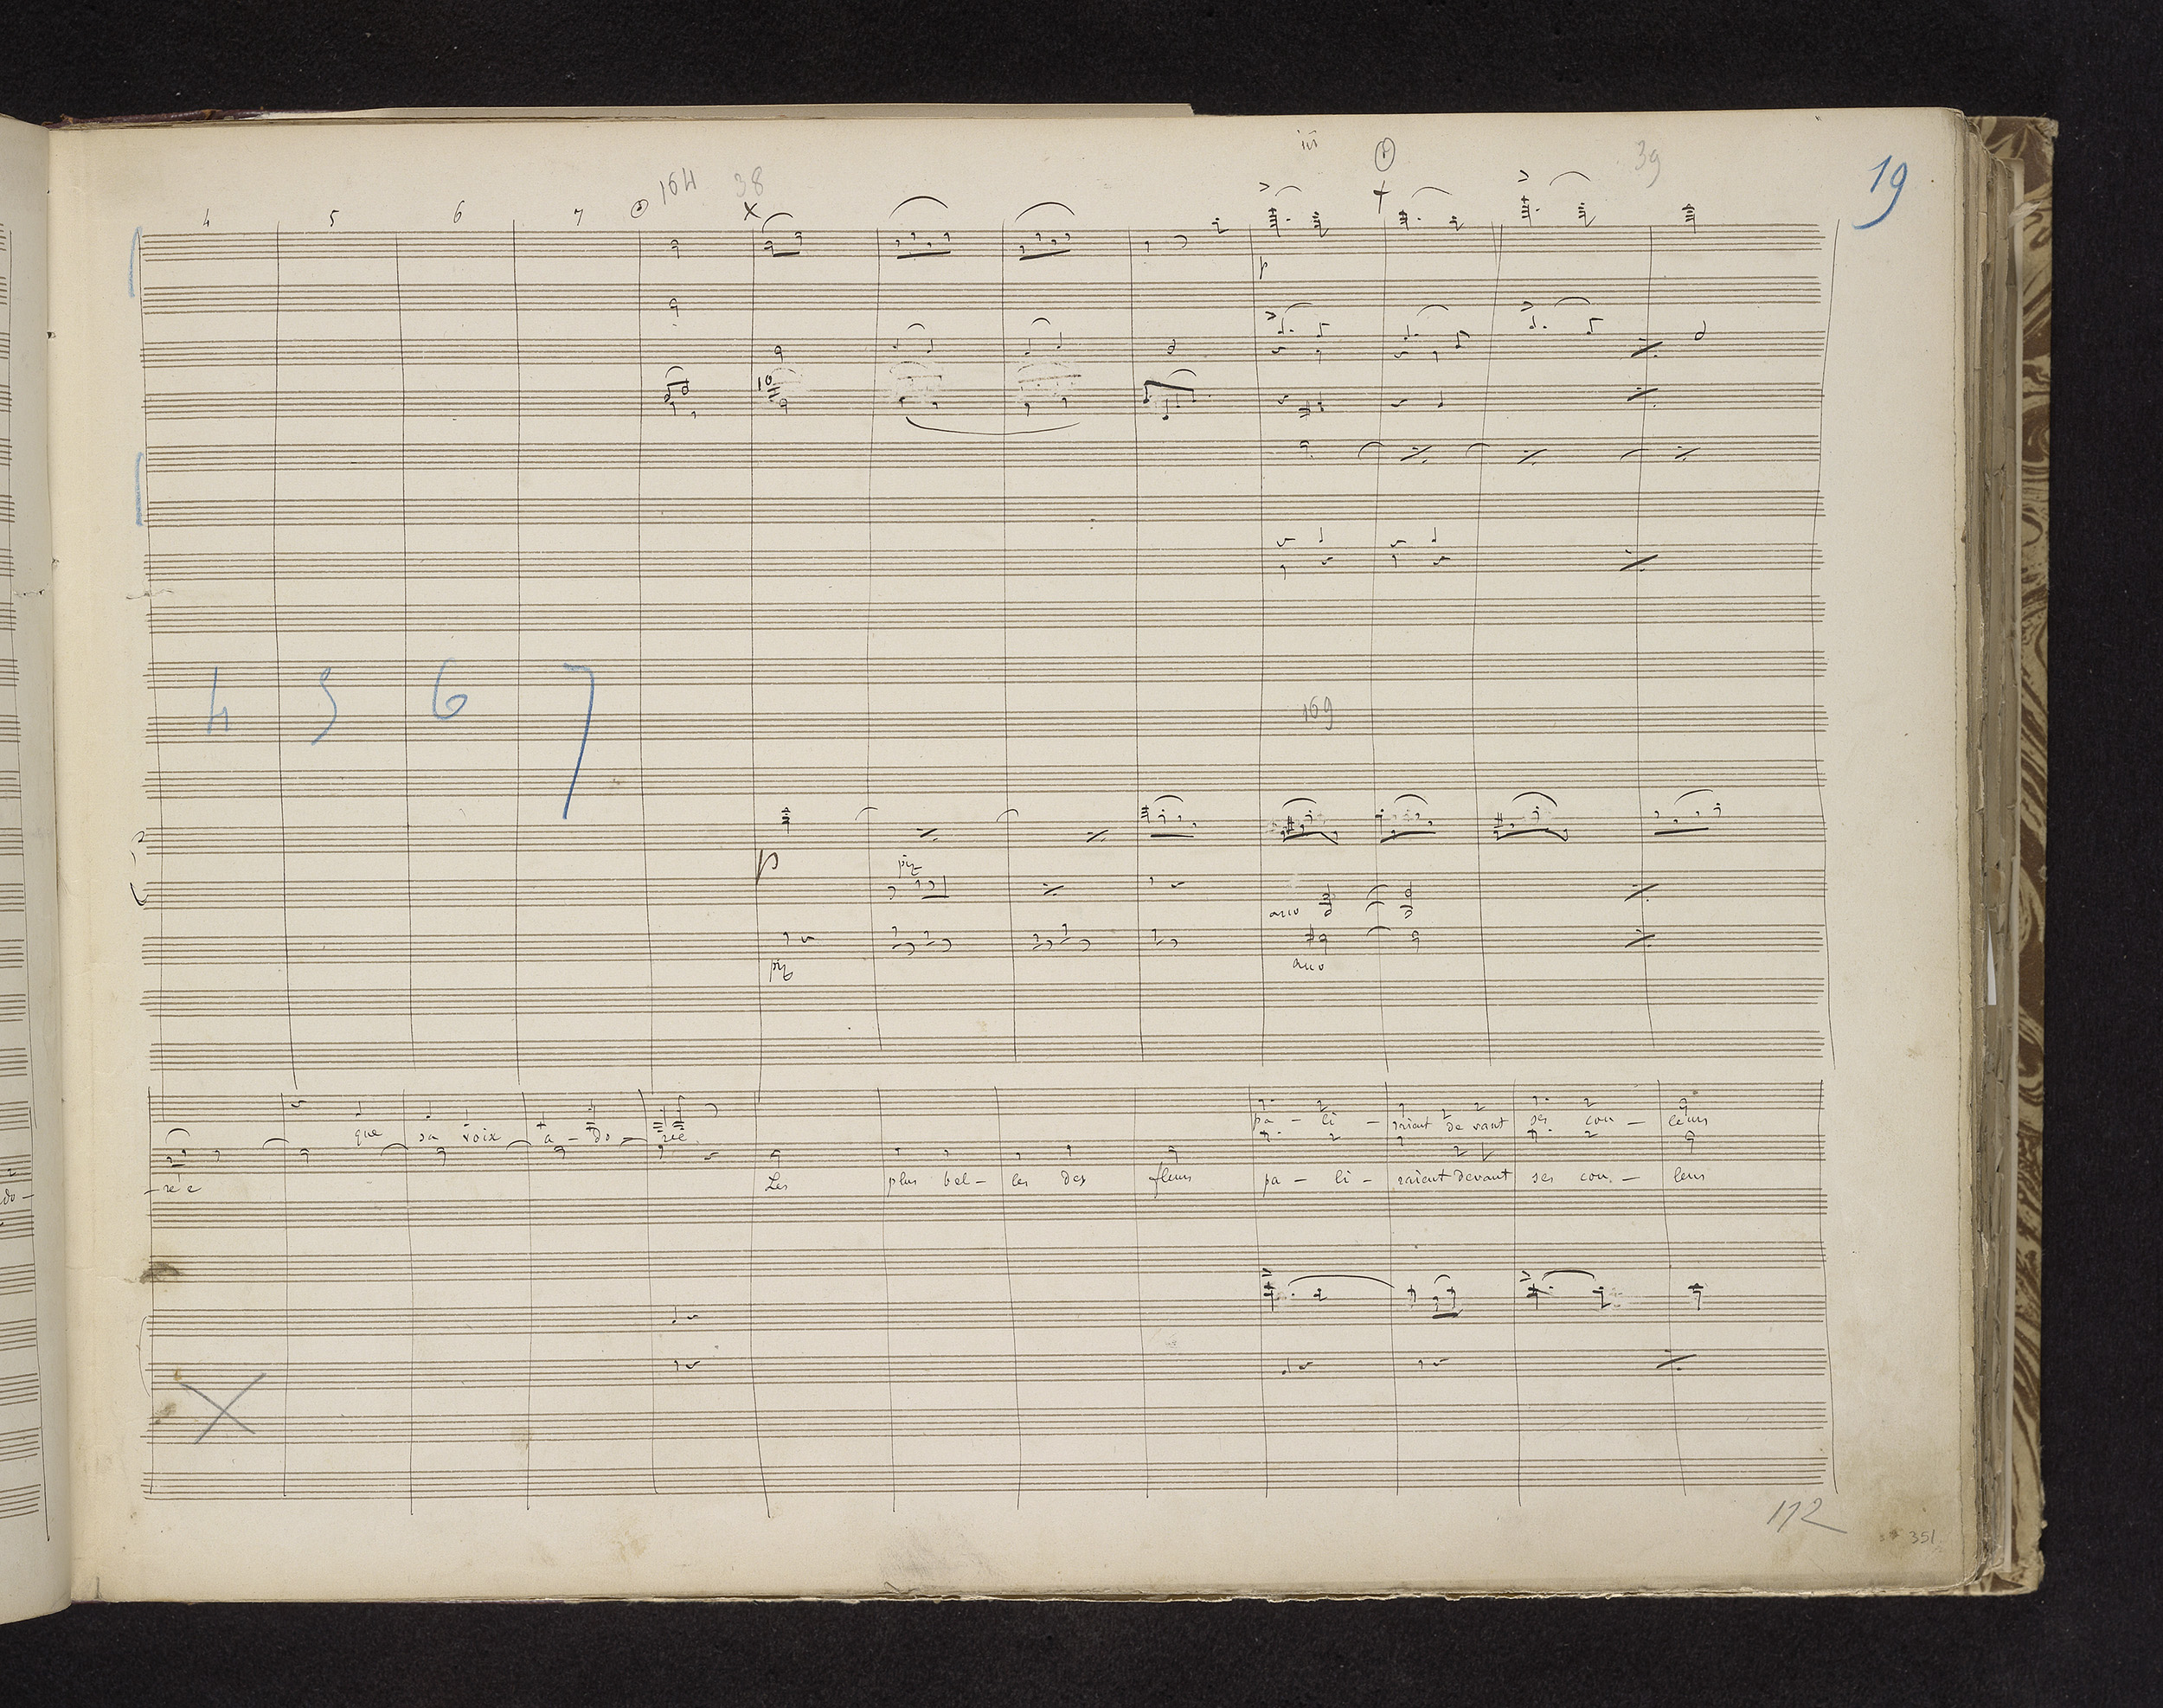 19
164 38 39
4 5 6 7
p
4 5 6 7
169
p
piz
arco
piz arco
que sa voix a - do - rée
pa - li - raient de vant ses cou - leurs
do -
- ré e Les plus bel - les des fleurs pa - li - raient devant ses cou - leurs
112
351